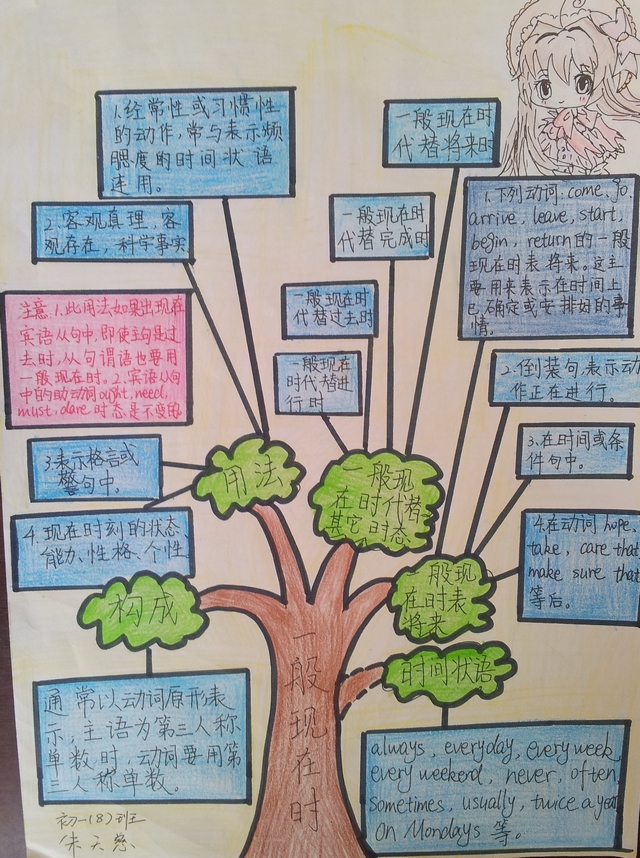 1.经常性或习惯性
的动作,常与表示频
腮度的时间状语
连用。
一般现在时
代替将来时
2.客观真理,客
观存在,科学事实
一般现在时
代替完成时
1.下列动词:come, go
arrive, leave, start,
begin, return的一般
现在时表将来。这主
要用来表示在时间上
已确定或安排好的事
情。
注意:1.此用法如果出现在
宾语从句中,即使主句是过
去时,从句谓语也要用
一般现在时。2.宾语从句
中的助动词ought, need,
must, dare时态是不变的
一般现在时
代替过去时
一般现在
时代替进
行时
2.倒装句,表示动
作正在进行。
3.在时间或条
件句中。
3.表示格言或
警句中。
用法
一般现
在时代替
其它时态
4.现在时刻的状态、
能力、性格、个性
4.在动词hope,
take, care that
make sure that
等后。
构成
一般现
在时表
将来
时间状语
一般现在时
通常以动词原形表
示,主语为第三人称
单数时,动词要用第
三人称单数。
always, everyday, every week
every weekend, never, often,
sometimes, usually, twice a year
On Mondays 等。
初一(8)班
朱天慈